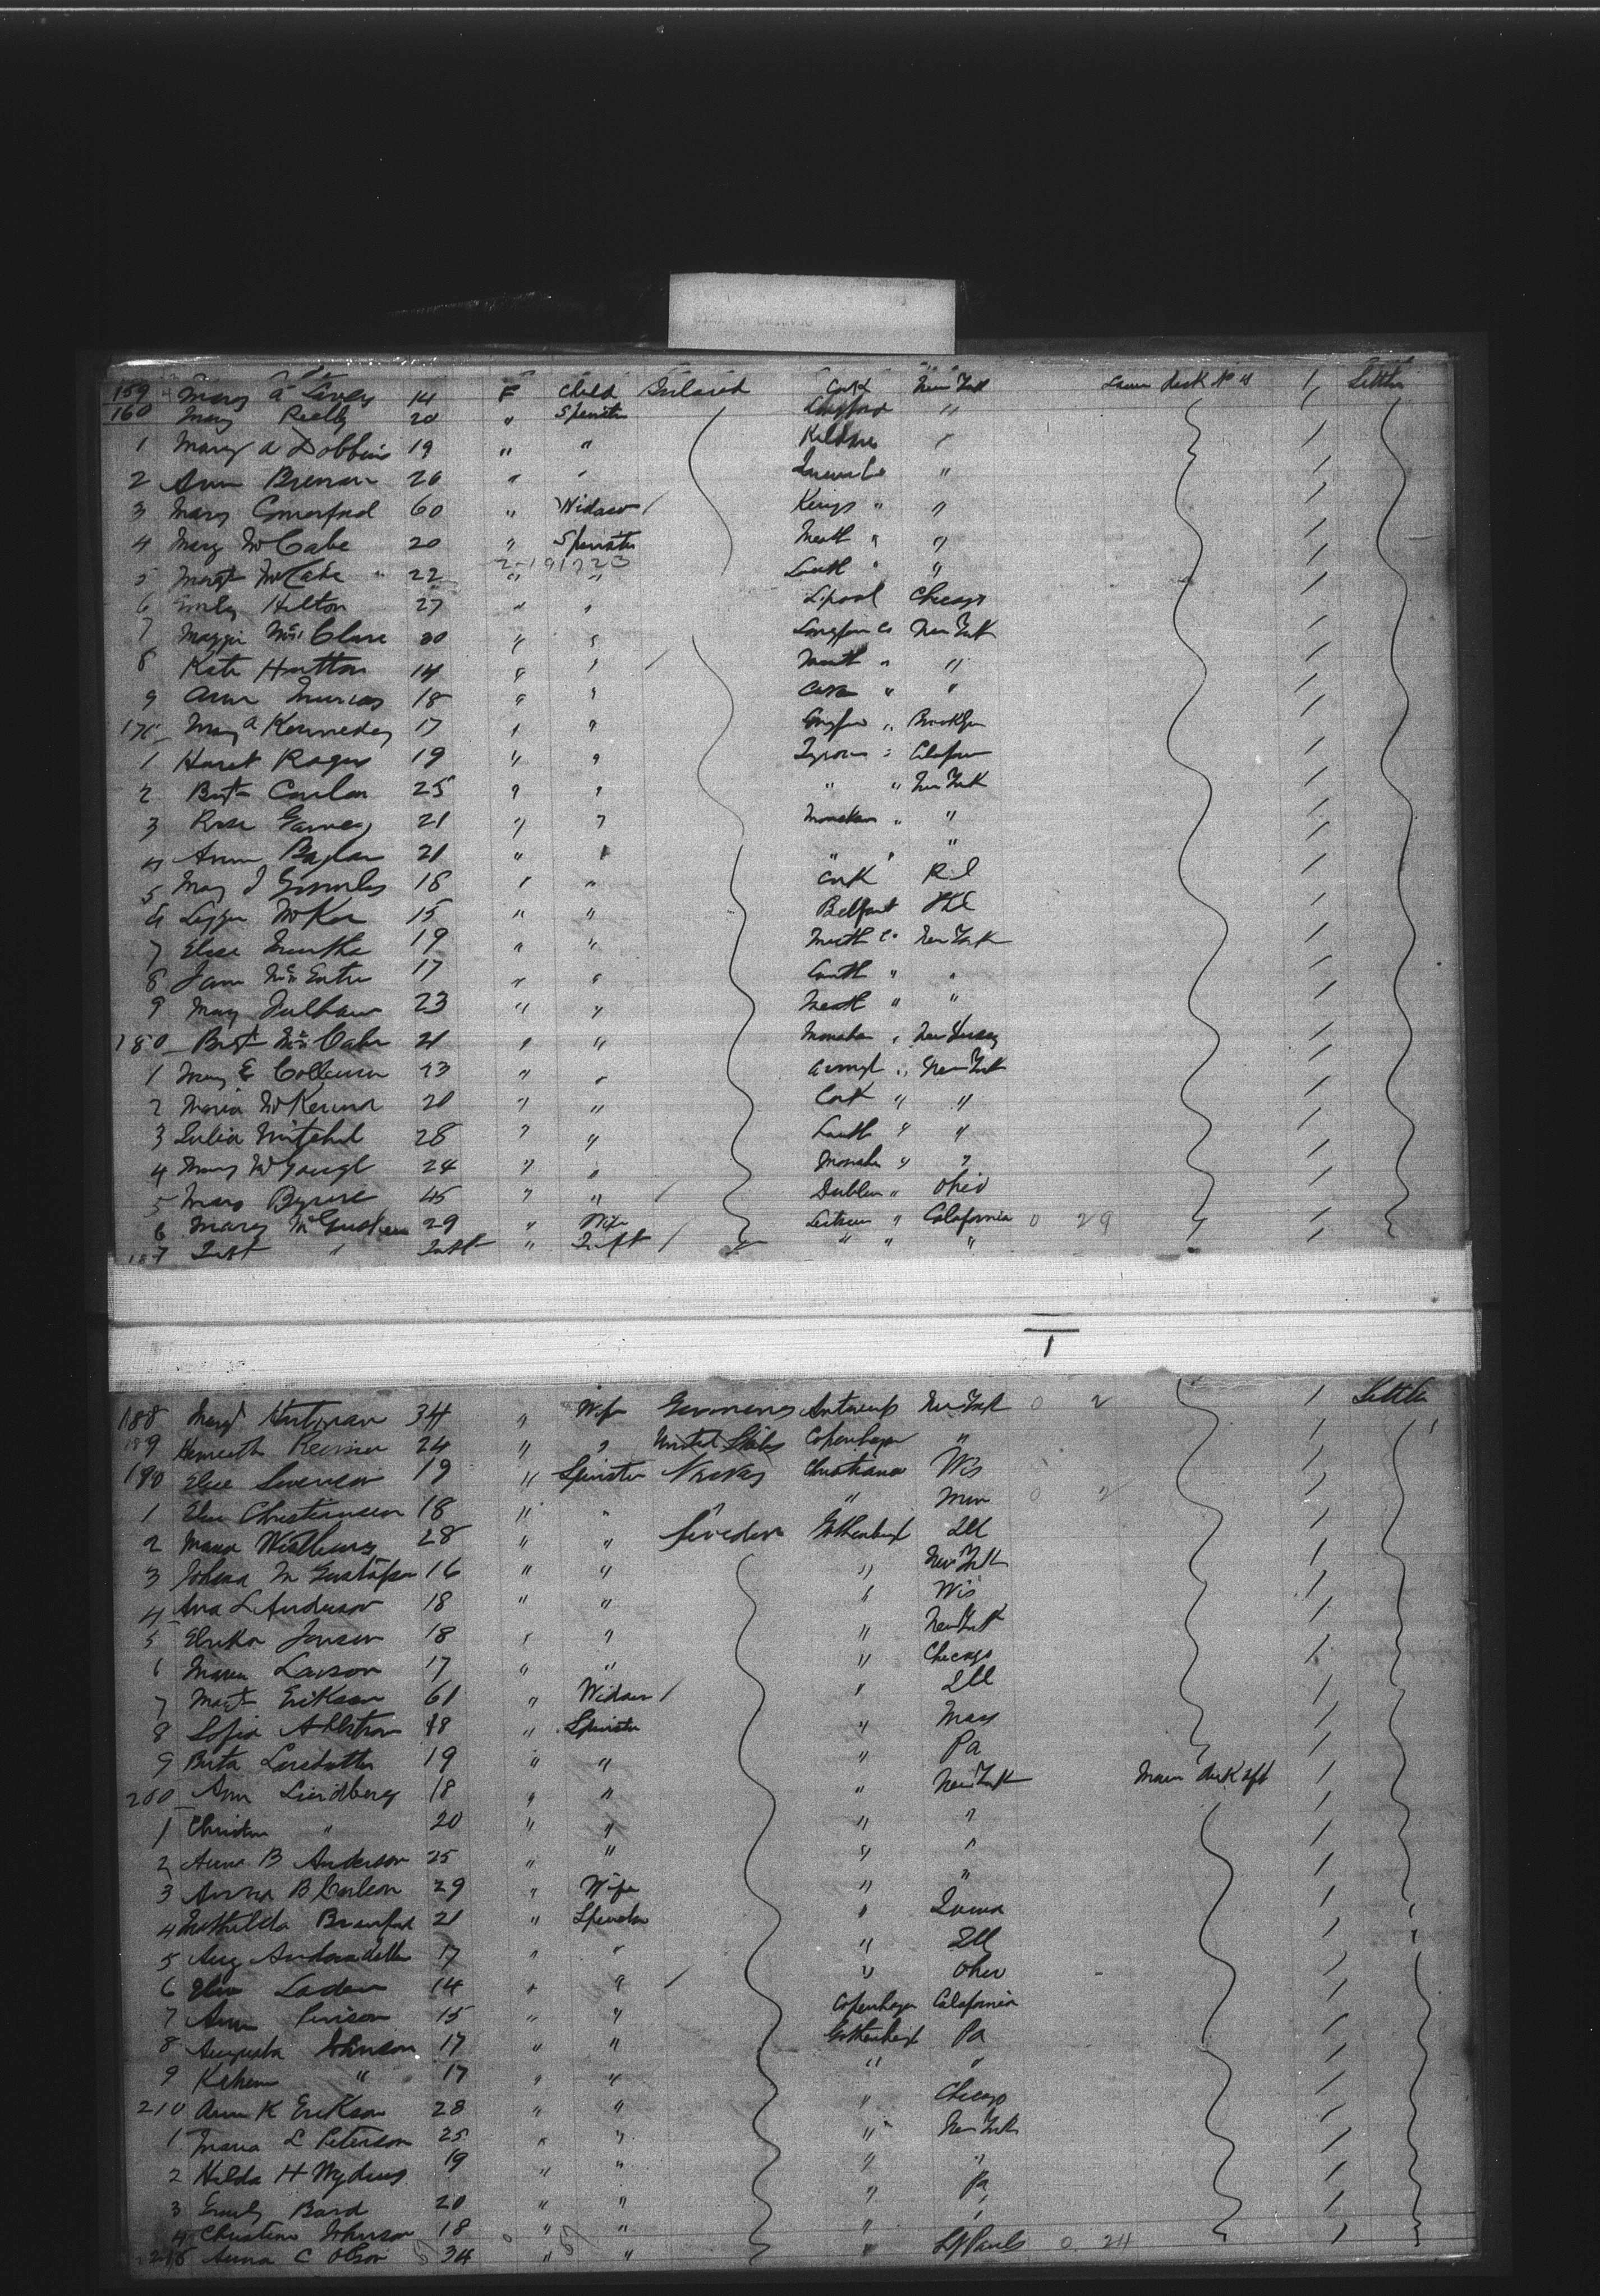 159 Mary A 14 F Child Ireland Cork New York Lower deck No 4 1 Settler
160 Mary Reilly 20 " Spinster Longford "
1 Mary A Dobbins 19 " " Kildare "
2 Ann Brenan 26 " " Queens Co "
3 Mary Comerford 60 " Widow Kings " "
4 Mary McCabe 20 " Spinster Meath " "
5 Margt McCabe 22 2-191723 " " Louth " "
6 Emily Hilton 27 " " L.pool Chicago
7 Maggie McClare 20 " " Longford Co New York
8 Kate Hutton 14 " " Meath " "
9 Ann 18 " " Cavan " "
170 Mary A Kennedy 17 " " Longford " Brooklyn
1 Haret Rogers 19 " " Tyrone "
2 Bgt Conlan 25 " " " " New York
3 Rose Garvey 21 " " Monahan " "
4 Ann Baylan 21 " " " " "
5 Mary J 18 " " Cork R I
6 McKee 15 " " Belfast
7 Elise 19 " " Meath Co New York
8 Jane McEntee 17 " " Louth " "
9 Mary 23 " " Meath " "
180 Bgt McCabe 21 " " Monahan " New Jersey
1 Mary E 23 " " Armagh " New York
2 Maria McKenna 20 " " Cork " "
3 Julia Mitchel 28 " " Louth " "
4 Mary McGough 24 " " Monahan " "
5 Mary Byrne 45 " " Dublin " Ohio
6 Mary 29 " Wife Leitrim " Calafornia 0 29
187 Inft " Inft " Inft " " "
1
188 Margt Hutman 34 " Wife Germany Antwerp New York 0 2 1 Settler
189 24 " " United States Copenhagen "
190 Elise Swenson 19 " Spinster Norway Christiana Wis
1 Elise Christiansen 18 " " " " Min 0 2
2 Maria 28 " " Sweden Gothenburg Ill
3 Johana M Gustafson 16 " " " New York
4 Ana L Anderson 18 " " " Wis
5 Erika Jonson 18 " " " New York
6 Maria Larson 17 " " " Chicago
7 Margt Erikson 61 " Widow " Ill
8 Sofia Ahlstrom 18 " Spinster " Mass
9 Brita Larsdatter 19 " " " Pa
200 Ann Lindberg 18 " " " New York Main deck aft
1 Christin " 20 " " " "
2 Anna B Anderson 25 " " " "
3 Anna B Carlson 29 " Wife " "
4 Mathilda 21 " Spinster " Iowa
5 Aug 17 " " " Ill
6 14 " " " Ohio
7 Ann 15 " " Copenhagen Calafornia
8 Augusta Johnson 17 " " Gothenburg Pa
9 " 17 " " " "
210 Ann K Erikson 28 " " " Chicago
1 Maria L Peterson 25 " " " New York
2 Hilda H 19 " " " "
3 Emily Bard 20 " " " Pa
4 Christina Johnson 18 " " " "
215 Anna C Olson 34 " " " St Pauls 0 24